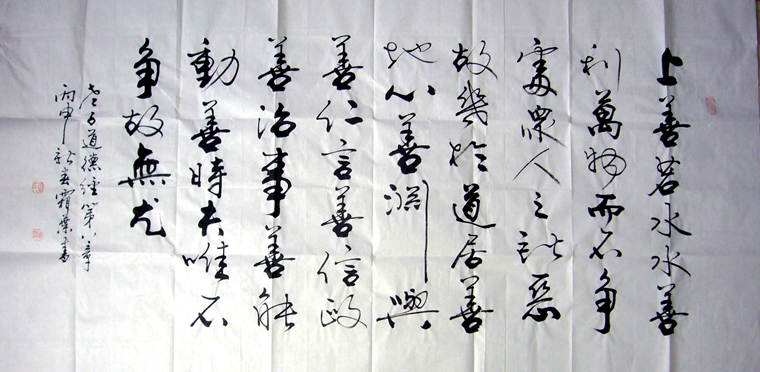 上善若水水善
利萬物而不争
處衆人之所惡
故幾於道居善
地心善淵與
善仁言善信政
善治事善能
動善時夫唯不
争故無尤
老子道德經第八章
丙申新春霜葉書